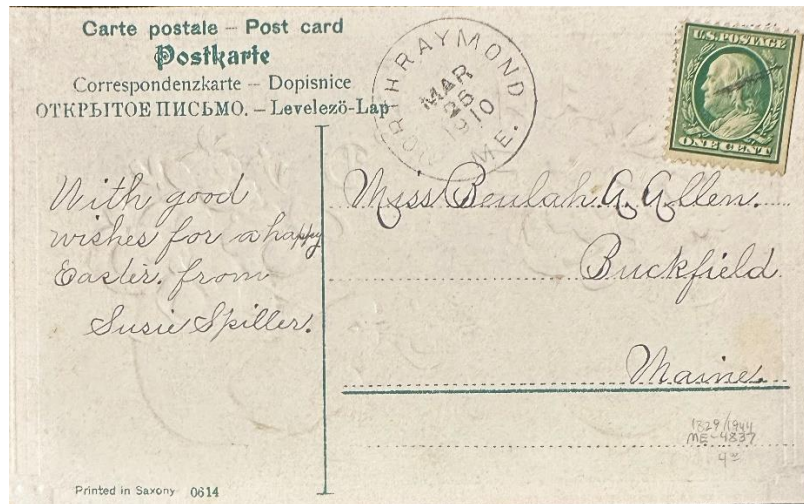 Carte postale – Post card
Postkarte
Correspondenzkarte – Dopisnice
ОТКРЫТОЕ ПИСЬМО. – Levelező-Lap
NORTH RAYMOND
MAR
25
1910
ME.
U.S. POSTAGE
ONE CENT
With good
wishes for a happy
Easter. from
Susie Spiller.
Miss Beulah A. Allen.
Buckfield
Maine.
1829/1944
ME-4837
Printed in Saxony 0614